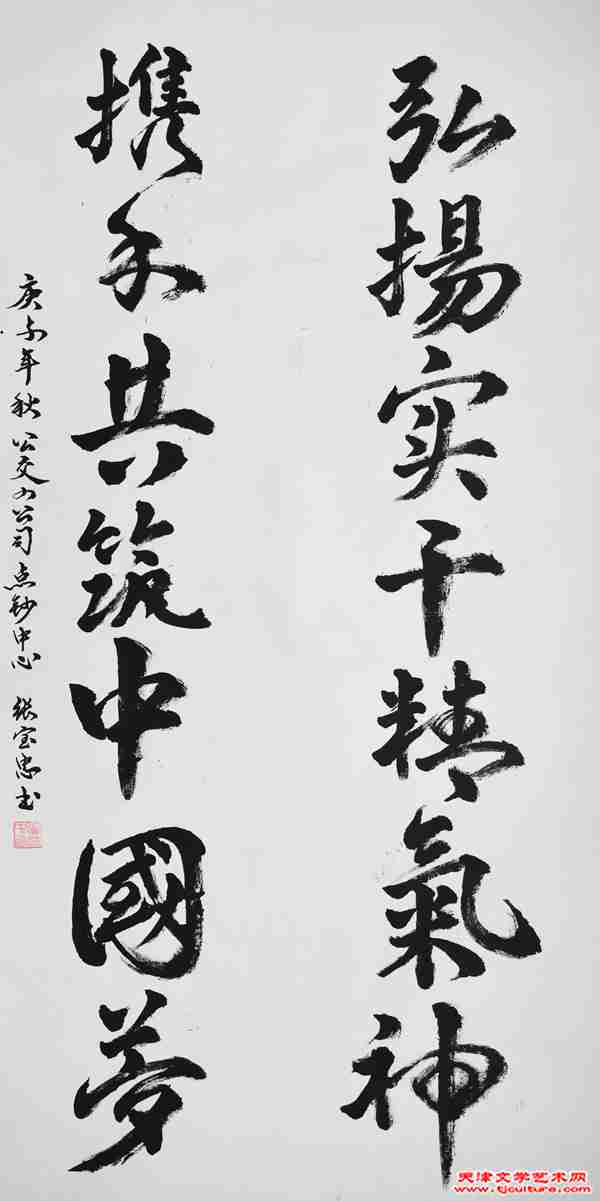 弘揚实干精氣神
携手共筑中國夢
庚子年秋公交四公司点钞中心 張宝忠书
天津文学艺术网
www.tjculture.com